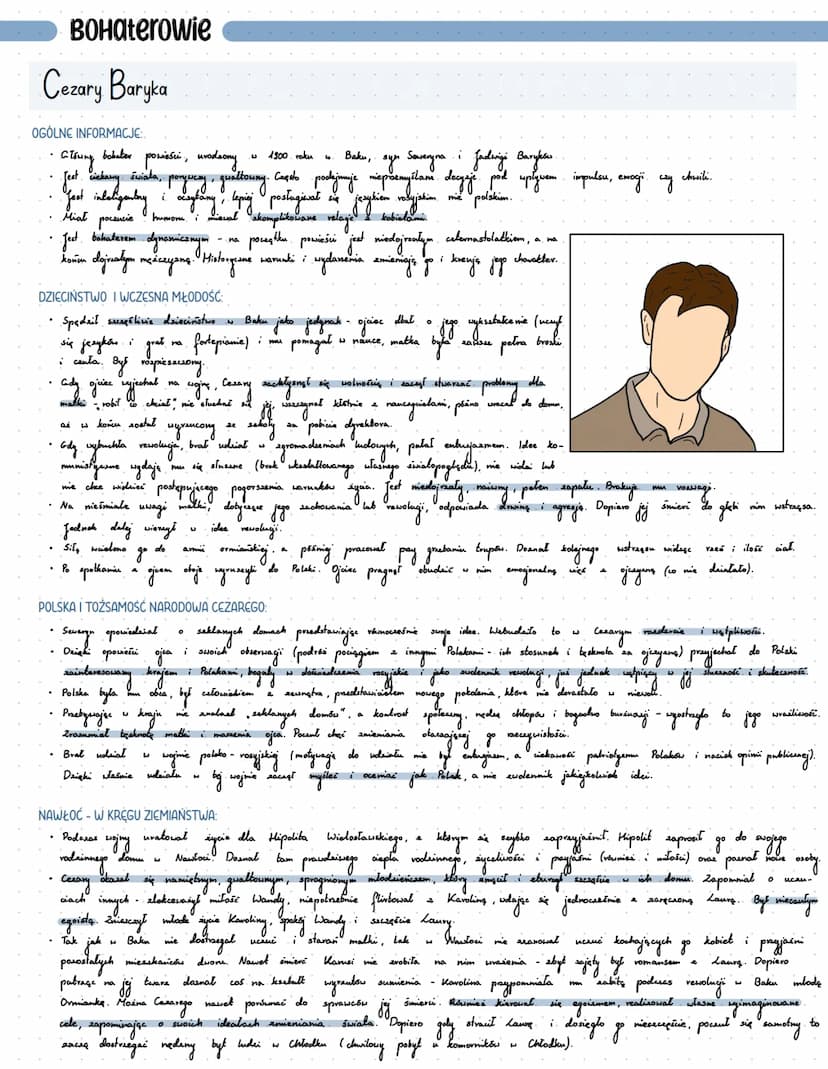 BOHATEROWIE
Cezary Baryka
OGÓLNE INFORMACJE:
• Główny bohater powieści, urodzony w 1900 roku w Baku, syn Seweryna i Jadwigi Baryków.
• Jest ciekawy świata, porywczy, gwałtowny. Często podejmuje nieprzemyślane decyzje pod wpływem impulsu, emocji czy chwili.
• Jest inteligentny i oczytany, lepiej posługiwał się językiem rosyjskim niż polskim.
• Miał poczucie humoru i miewał skomplikowane relacje z kobietami.
• Jest bohaterem dynamicznym - na początku powieści jest niedojrzałym czternastolatkiem, a na
końcu dojrzałym mężczyzną. Historyczne warunki i wydarzenia zmieniają go i kreują jego charakter.
DZIECIŃSTWO I WCZESNA MŁODOŚĆ:
• Spędził szczęśliwie dzieciństwo w Baku jako jedynak - ojciec dbał o jego wykształcenie (uczył
się języków i grał na fortepianie) i mu pomagał w nauce, matka była zawsze pełna troski
i czuła. Był rozpieszczony.
• Gdy ojciec wyjechał na wojnę, Cezary zachłysnął się wolnością i zaczął stwarzać problemy dla
matki - „robił co chciał", nie słuchał się jej, wszczynał kłótnie z nauczycielami, późno wracał do domu,
aż w końcu został wyrzucony ze szkoły za pobicie dyrektora.
• Gdy wybuchła rewolucja, brał udział w zgromadzeniach ludowych, pałał entuzjazmem. Idee ko-
munistyczne wydają mu się słuszne (brak ukształtowanego własnego światopoglądu), nie widzi lub
nie chce widzieć postępującego pogorszenia warunków życia. Jest niedojrzały, naiwny, pełen zapału. Brakuje mu rozwagi.
• Na nieśmiałe uwagi matki, dotyczące jego zachowania lub rewolucji, odpowiada drwiną i agresją. Dopiero jej śmierć do głębi nim wstrząsa.
Jednak dalej wierzył w idee rewolucji.
• Siłą wcielono go do armii ormiańskiej, a później pracował przy grzebaniu trupów. Doznał kolejnego wstrząsu widząc rzeź i ilość ciał.
• Po spotkaniu z ojcem oboje wyruszyli do Polski. Ojciec pragnął obudzić w nim emocjonalną więź z ojczyzną (co nie działało).
POLSKA I TOŻSAMOŚĆ NARODOWA CEZAREGO:
• Seweryn opowiedział o szklanych domach przedstawiając równocześnie swoje idee. Wzbudziło to w Cezarym rozdarcie i wątpliwości.
• Dzięki opowieści ojca i swoich obserwacji (podróż pociągiem z innymi Polakami - ich stosunek i tęsknota za ojczyzną) przyjechał do Polski
zainteresowany krajem i Polakami, bogaty w doświadczenia rosyjskie i jako zwolennik rewolucji, już jednak wątpiący w jej słuszność i skuteczność.
• Polska była mu obca, był człowiekiem z zewnątrz, przedstawicielem nowego pokolenia, które nie dorastało w niewoli.
• Przebywając w kraju nie znalazł „szklanych domów", a kontrast społeczny, nędza chłopów i bogactwo burżuazji - wyostrzyło to jego wrażliwość.
Zrozumiał tęsknotę matki i marzenia ojca. Poczuł chęć zmieniania otaczającej go rzeczywistości.
• Brał udział w wojnie polsko-rosyjskiej (motywacją do udziału nie był entuzjazm, a ciekawość patriotyzmu Polaków i nacisk opinii publicznej).
Dzięki właśnie udziału w tej wojnie zaczął myśleć i oceniać jak Polak, a nie zwolennik jakiejkolwiek idei.
NAWŁOĆ - W KRĘGU ZIEMIAŃSTWA:
• Podczas wojny uratował życie dla Hipolita Wielosławskiego, z którym się szybko zaprzyjaźnił. Hipolit zaprosił go do swojego
rodzinnego domu w Nawłoci. Doznał tam prawdziwego ciepła rodzinnego, życzliwości i przyjaźni (również i miłości) oraz poznał nowe osoby.
• Cezary okazał się namiętnym, gwałtownym, spragnionym młodzieńcem, który zniszczył szczęście w ich domu. Zapomniał o uczu-
ciach innych - zlekceważył miłość Wandy, niepotrzebnie flirtował z Karoliną, wdając się jednocześnie z zaręczoną Laurą. Był nieczułym
egoistą. Zniszczył młode życie Karoliny, spokój Wandy i szczęście Laury.
• Tak jak w Baku nie dostrzegał uczuć i starań matki, tak w Nawłoci nie szanował uczuć kochających go kobiet i przyjaźni
pozostałych mieszkańców dworu. Nawet śmierć Karusi nie zrobiła na nim wrażenia - zbyt zajęty był romansem z Laurą. Dopiero
patrząc na jej twarz doznał coś na kształt wyrzutów sumienia - Karolina przypomniała mu zabitą podczas rewolucji w Baku młodą
Ormiankę. Można Cezarego nawet porównać do sprawców jej śmierci. Również kierował się egoizmem, realizował własne wyimaginowane
cele, zapominając o swoich ideałach zmieniania świata. Dopiero gdy stracił Laurę i dosięgło go nieszczęście, poczuł się samotny to
zaczął dostrzegać nędzny byt ludzi w Chłodku (chwilowy pobyt u komorników w Chłodku).